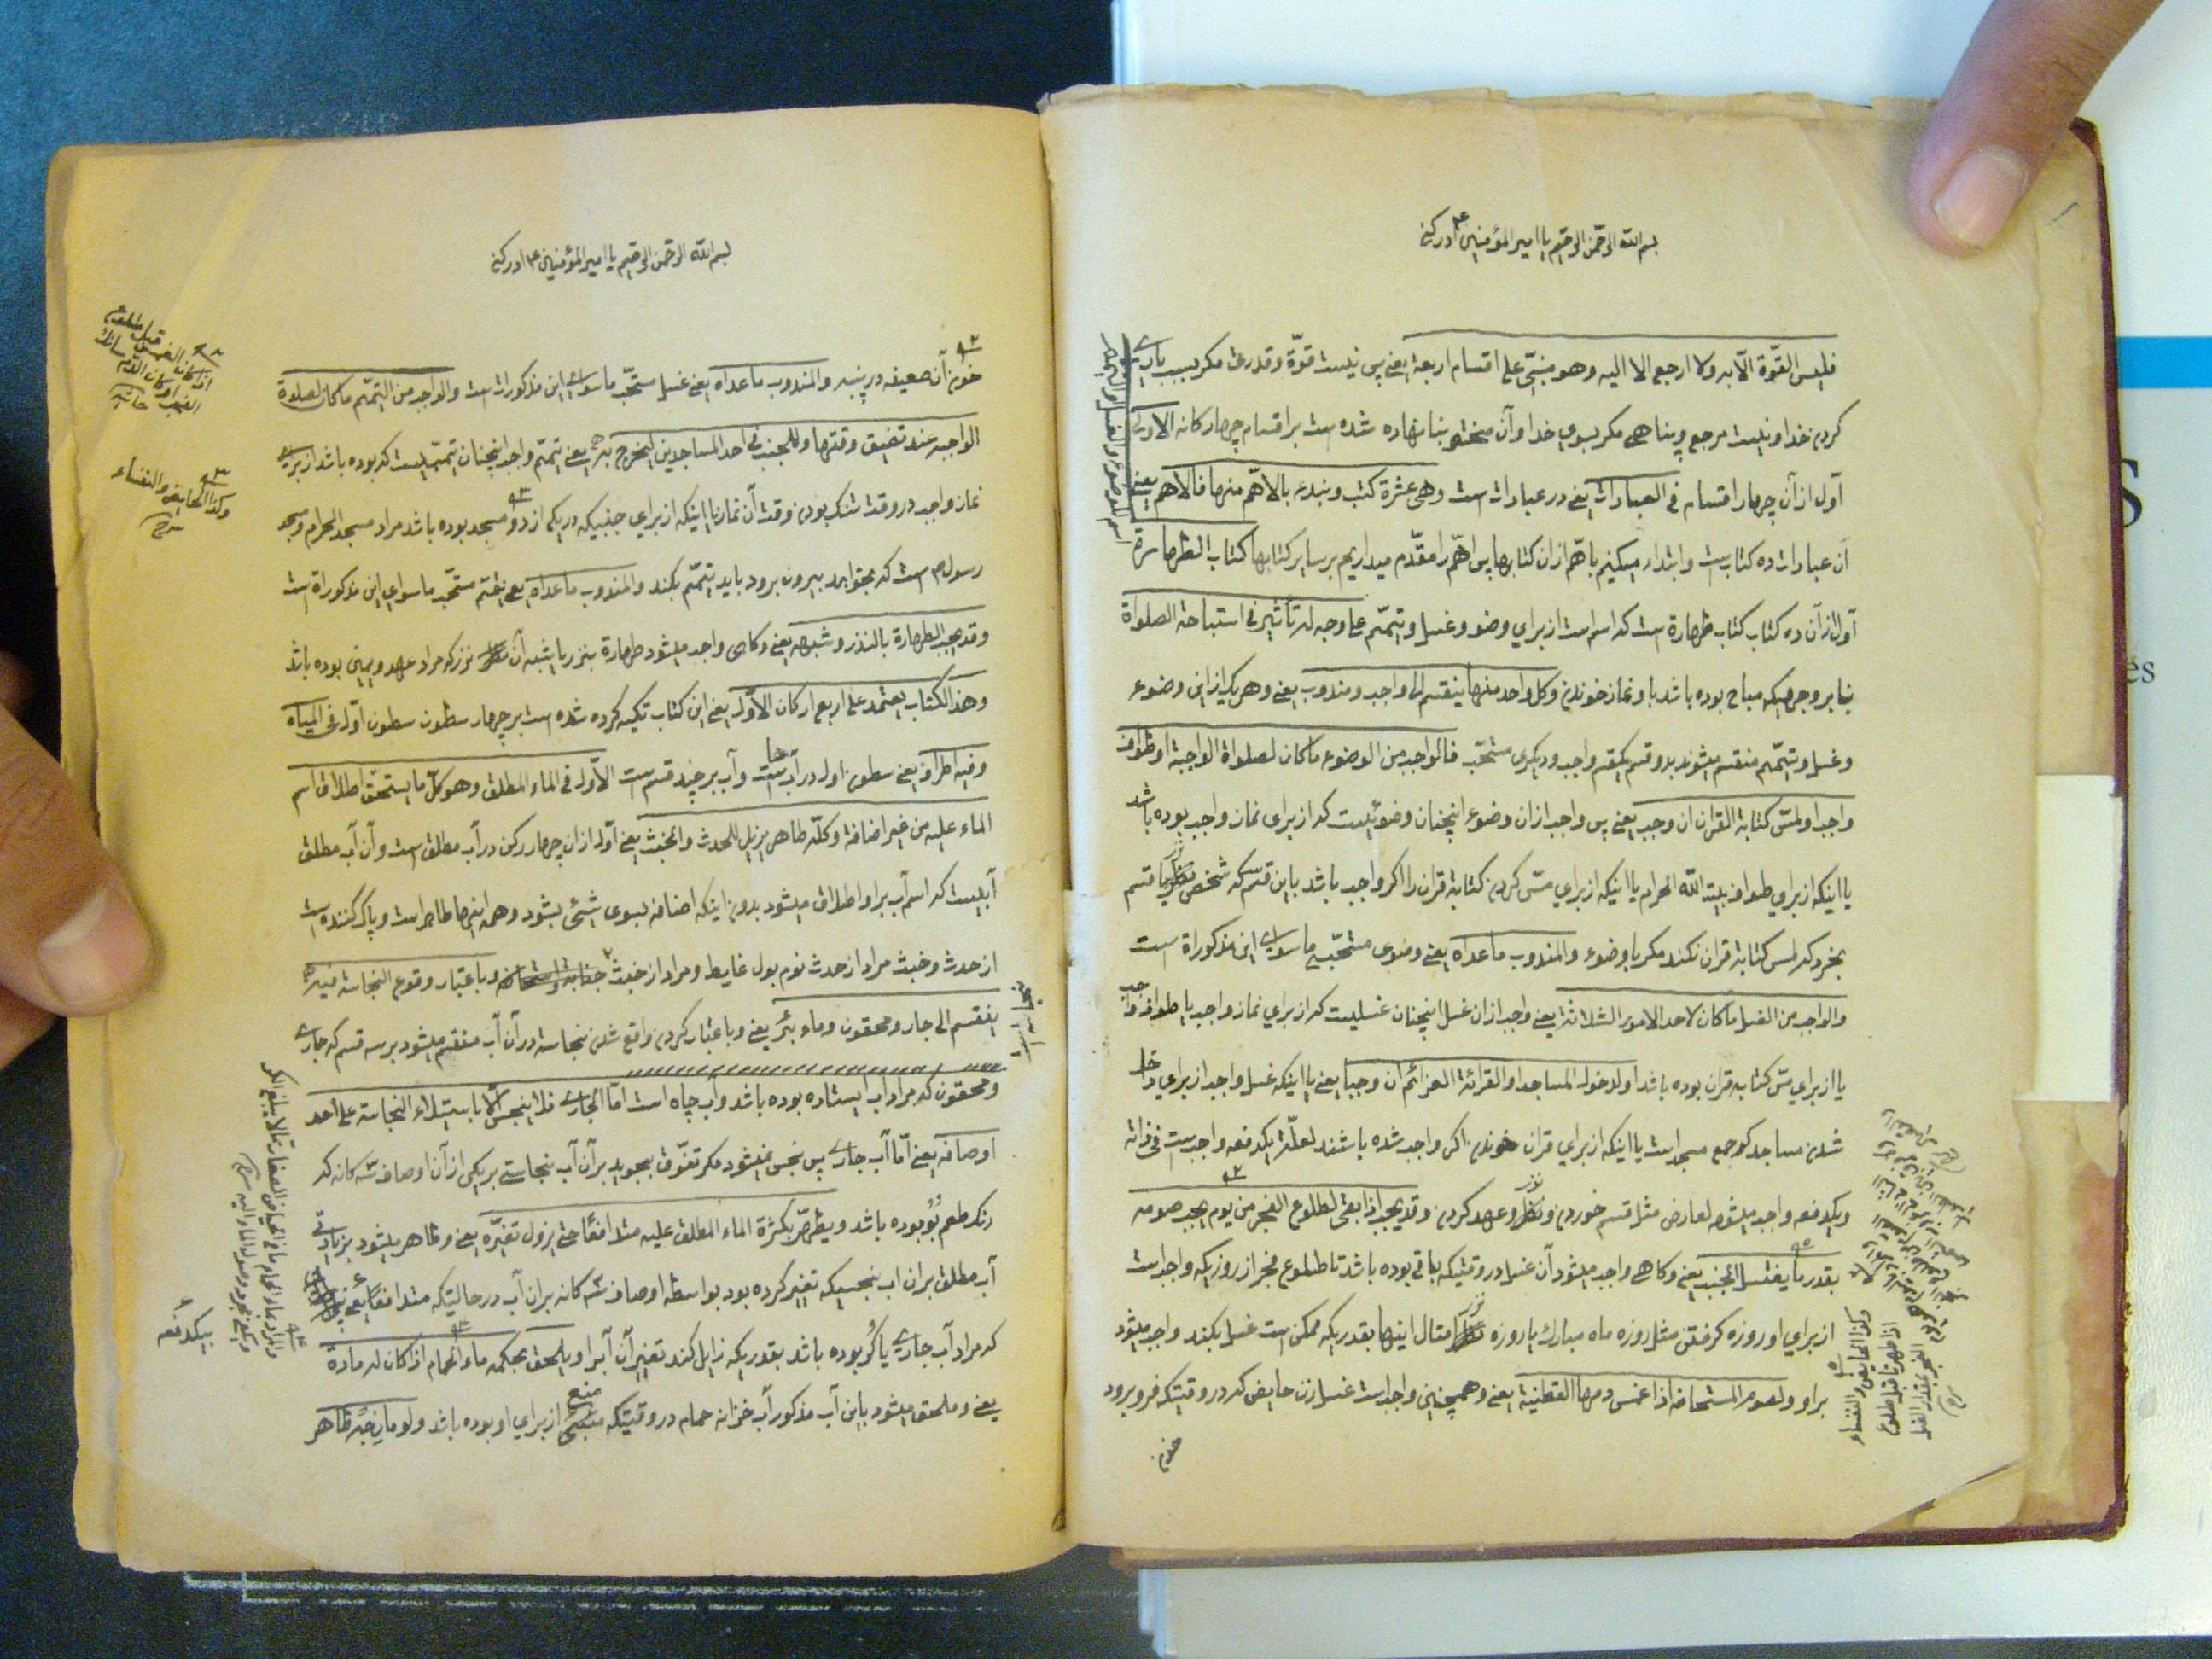 بسم الله الرحمن الرحیم یا امیر المؤمنین ع ادرکنی
فلیس القوّة الّا به ولا ارجع الا الیه وهو مبنیّ علی اقسام اربعة یعنی پس نیست قوّة وقدرت مکر بسبب یاری
کردن خدا ونیست مرجع وپناهی مکر بسوی خدا وآن مختصر بنا نهاده شده است بر اقسام چهارکانه الاول
اوّل از آن چهار اقسام فی العبادات یعنی در عبادات است وهی عشرة کتب ونبدء بالاهّم منها فالاهم یعنی
آن عبادات ده کتاب است وابتداء میکنیم باهّم ازان کتابها پس اهّم را مقدّم میداریم بر سایر کتابها کتاب الطهارة
اوّل از آن ده کتاب کتاب طهارة است که اسم است از برای وضو وغسل وتیمّم علی وجه له تأثیر فی استباحة الصلواة
بنابر وجهیکه مباح بوده باشد با او نماز خوندن وکل واحد منها ینقسم الی واجب ومندوب یعنی وهر یک از این وضوء
وغسل وتیمّم منقسم میشوند بدو قسم یکقسم واجب ودیکری مستحّب فالواجب من الوضوء ماکان لصلواة الواجبة او طواف
واجب او لمسّ کتابة القران ان وجب یعنی پس واجب ازان وضوء اینچنان وضوئیست که از برای نماز واجب بوده باشد
یا اینکه از برای طواف بیت الله الحرام یا اینکه از برای مسّ کردن کتابة قران را اکر واجب باشد باین قسم که شخص نذر یا قسم
بخرد که لمس کتابة قران نکند مکر با وضوء والمندوب ماعداه یعنی وضوی مستحّب ماسوای این مذکوراة است
والواجب من الغسل ماکان لاحد الامور الثلاثة یعنی واجب ازان غسل اینچنان غسلیست که از برای نماز واجب یا طواف واجب
یا از برای مسّ کتابه قران بوده باشد او لدخول المساجد او القرائة العزائم ان وجبا یعنی یا اینکه غسل واجب از برای داخل
شدن مساجد که جمع مسجد است یا اینکه از برای قران خوندن اکر واجب شده باشند لعلّة یکدفعه واجب است فی ذاته
ویکدفعه واجب میشود لعارض مثل قسم خوردن ونذر وعهد کردن وقد یجب اذا بقی لطلوع الفجر من یوم یجب صومه
بقدر ما یغتسل الجنب یعنی وکاهی واجب میشود آن غسل در وقتیکه باقی بوده باشد تا طلوع فجر از روزیکه واجب است
از برای او روزه کرفتن مثل روزه ماه مبارك یا روزه نذر امثال اینها بقدریکه ممکن است غسل بکند واجب میشود
براو ولصوم المستحاضة اذا غمس دمها القطنة یعنی وهمچنین واجب است غسل زن حایض که در وقتیکه فرو برود
خون
اسم للوضوء والغسل او التیمم
وکذا الحایض والنفساء
اذا طهرتا قبل طلوع
الفجر بمقدار الغسل
بسم الله الرحمن الرحیم یا امیر المؤمنین ع ادرکنی
خون آن ضعیفه در پنبه والمندوب ماعداه یعنی غسل مستحّب ماسوای این مذکورات است والواجب من التیمّم ماکان لصلوة
الواجبه عند تضیق وقتها وللجنب فی احد المساجدین لیخرج به یعنی تیمّم واجب اینچنان تیمّمیست که بوده باشد از برای
نماز واجب در وقت تنک بودن وقت آن نماز یا اینکه از برای جنبیکه در یکی از دو مسجد بوده باشد مراد مسجد الحرام ومسجد
رسول ص است که بخواهد بیرون برود باید تیمّم بکند والمندوب ماعداه یعنی تیمّم مستحّب ماسوای این مذکوراة است
وقد یجب الطهارة بالنذر وشبهه یعنی وکاهی واجب میشود طهارة بنزر یا شبه آن نزر که مراد عهد ویمین بوده باشد
وهذا الکتاب یعتمد علی اربع ارکان الاوّل یعنی این کتاب تکیه کرده شده است بر چهار سطون سطون اوّل فی المیاه
وفیه اطراف یعنی سطون اول در آب ها است وآب بر چند قسم است الاوّل فی الماء المطلق وهو کلّ ما یستحقّ اطلاق اسم
الماء علیه من غیر اضافة وکلّه طاهر یزیل للحدث والخبث یعنی اوّل ازان چهار رکن در آب مطلق است وآن آب مطلق
آبیست که اسم آب براو اطلاق میشود بدون اینکه اضافه بسوی شیئی بشود وهمه اینها طاهر است وپاک کننده است
از حدث وخبث مراد از حدث نوم بول غایط ومراد از خبث جنابة واستحاضه وباعتبار وقوع النجاسة فیه
ینقسم الی جار ومحقون وماء بئر یعنی وباعتبار کردن واقع شدن نجاسة در آن آب منقسم میشود بر سه قسم که جاری
ومحقون که مراد آب ایستاده بوده باشد وآب چاه است امّا الجاری فلا ینجس الّا باستیلاء النجاسة علی احد
اوصافه یعنی امّا آب جاری پس نجس نمیشود مکر تفوّق بجوید بر آن آب نجاستی بر یکی از آن اوصاف ثلثه کانه که
رنک طعم بو بوده باشد ویطهّر بکثرة الماء المطلق علیه متدافعًا حتی یزول تغیّره یعنی وطاهر میشود بزیادتی
آب مطلق بران آب نجسیکه تغیر کرده بود بواسطه اوصاف ثلثه کانه بران آب در حالتیکه متدافعًا یعنی
که مراد آب جاری یا کُر بوده باشد بقدریکه زایل کند تغیر آن آبرا ویلحق بحکمه ماء الحمام اذا کان له مادة
یعنی وملحق میشود باین آب مذکور آب خزانه حمام در وقتیکه منبع از برای او بوده باشد ولو مازجه طاهر
وکذا الحایض والنفساء
شرح
والمراد بماء الحمام ما فی الحیاض الصغار ممّا لا یبلغ الکر
بیکدفعه